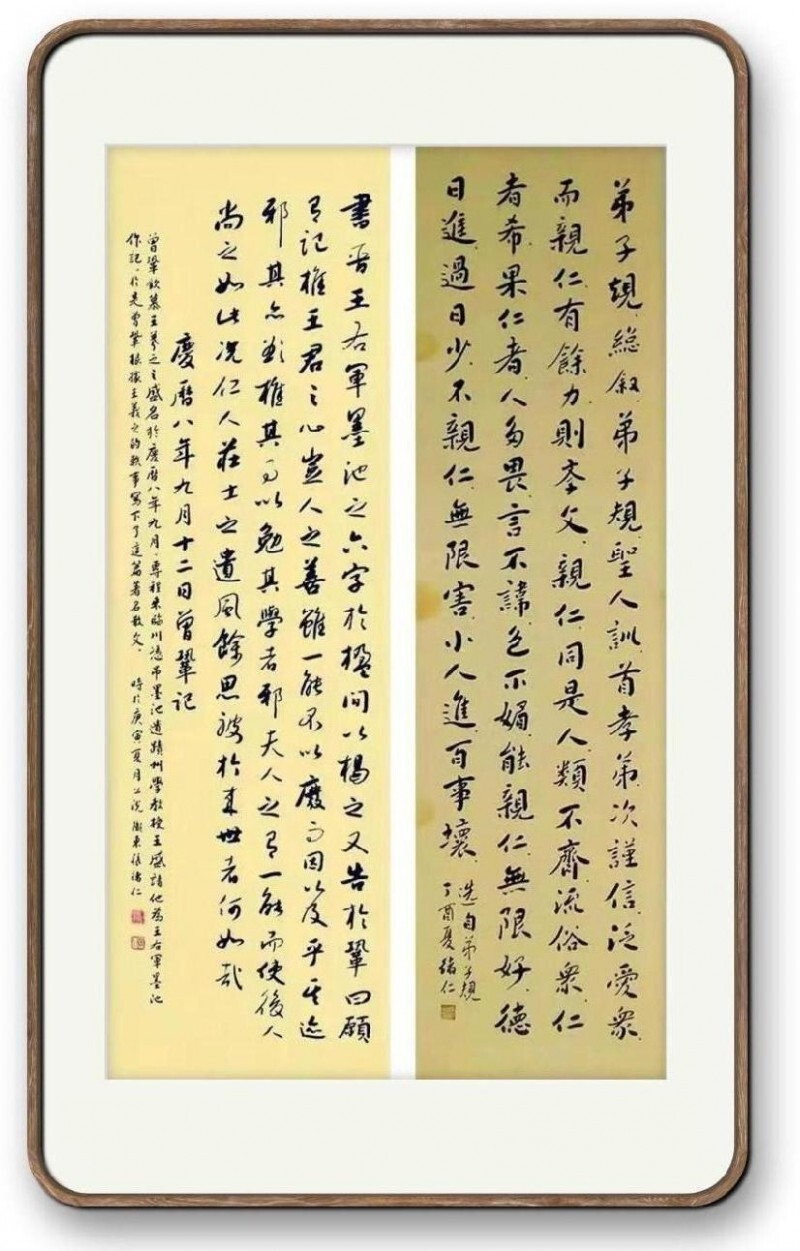 弟子規總叙弟子規聖人訓首孝弟次謹信泛愛衆
而親仁有餘力則斈文親仁同是人類不齊流俗衆仁
者希果仁者人多畏言不諱色不媚能親仁無限好德
日進過日少不親仁無限害小人進百事壞
選自弟子規
丁酉夏緒仁
書晉王右軍墨池之六字於楹間以揭之又告於鞏曰願
有記推王君之心豈人之善雖一能不以廢而因以及乎其迹
邪其亦欲推其事以勉其學者邪夫人之有一能而使後人
尚之如此况仁人莊士之遺風餘思被於來世者何如哉
慶曆八年九月十二日曾鞏記
曾鞏欽慕王羲之之盛名於慶曆八年九月，專程來臨川憑吊墨池遺蹟州學教授王盛請他為王右軍墨池
作記，於是曾鞏根據王羲之的軼事寫下了這篇著名散文。 時於庚寅夏月 張緒仁